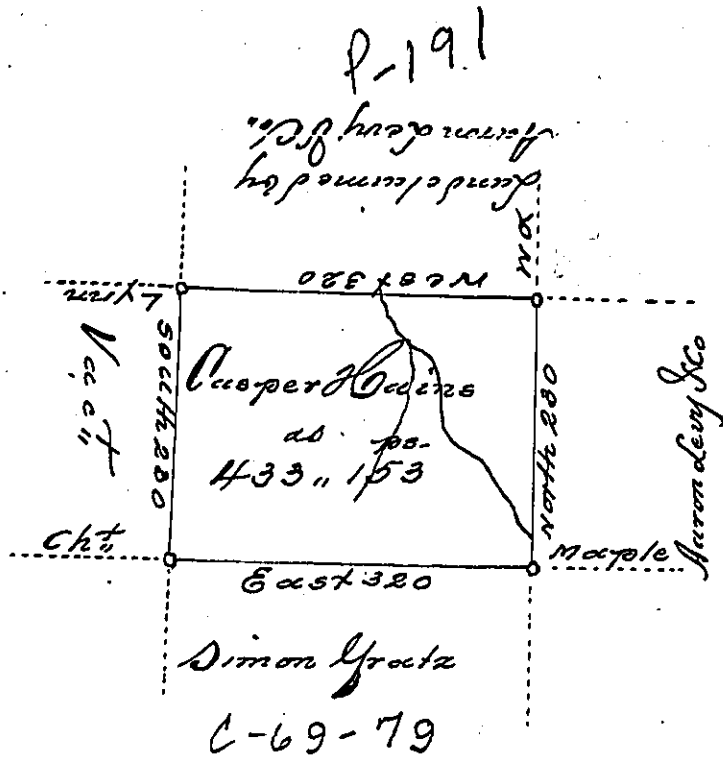 P-191
Land claimed by
Aaron Levy & Co.
W O
West 320
Lynn
Vac't
South 280
Casper Hains
as. ps.
433 „ 153
North 280
Aaron Levy & Co
Ch't
Maple
East 320
Simon Gratz
C-69-79